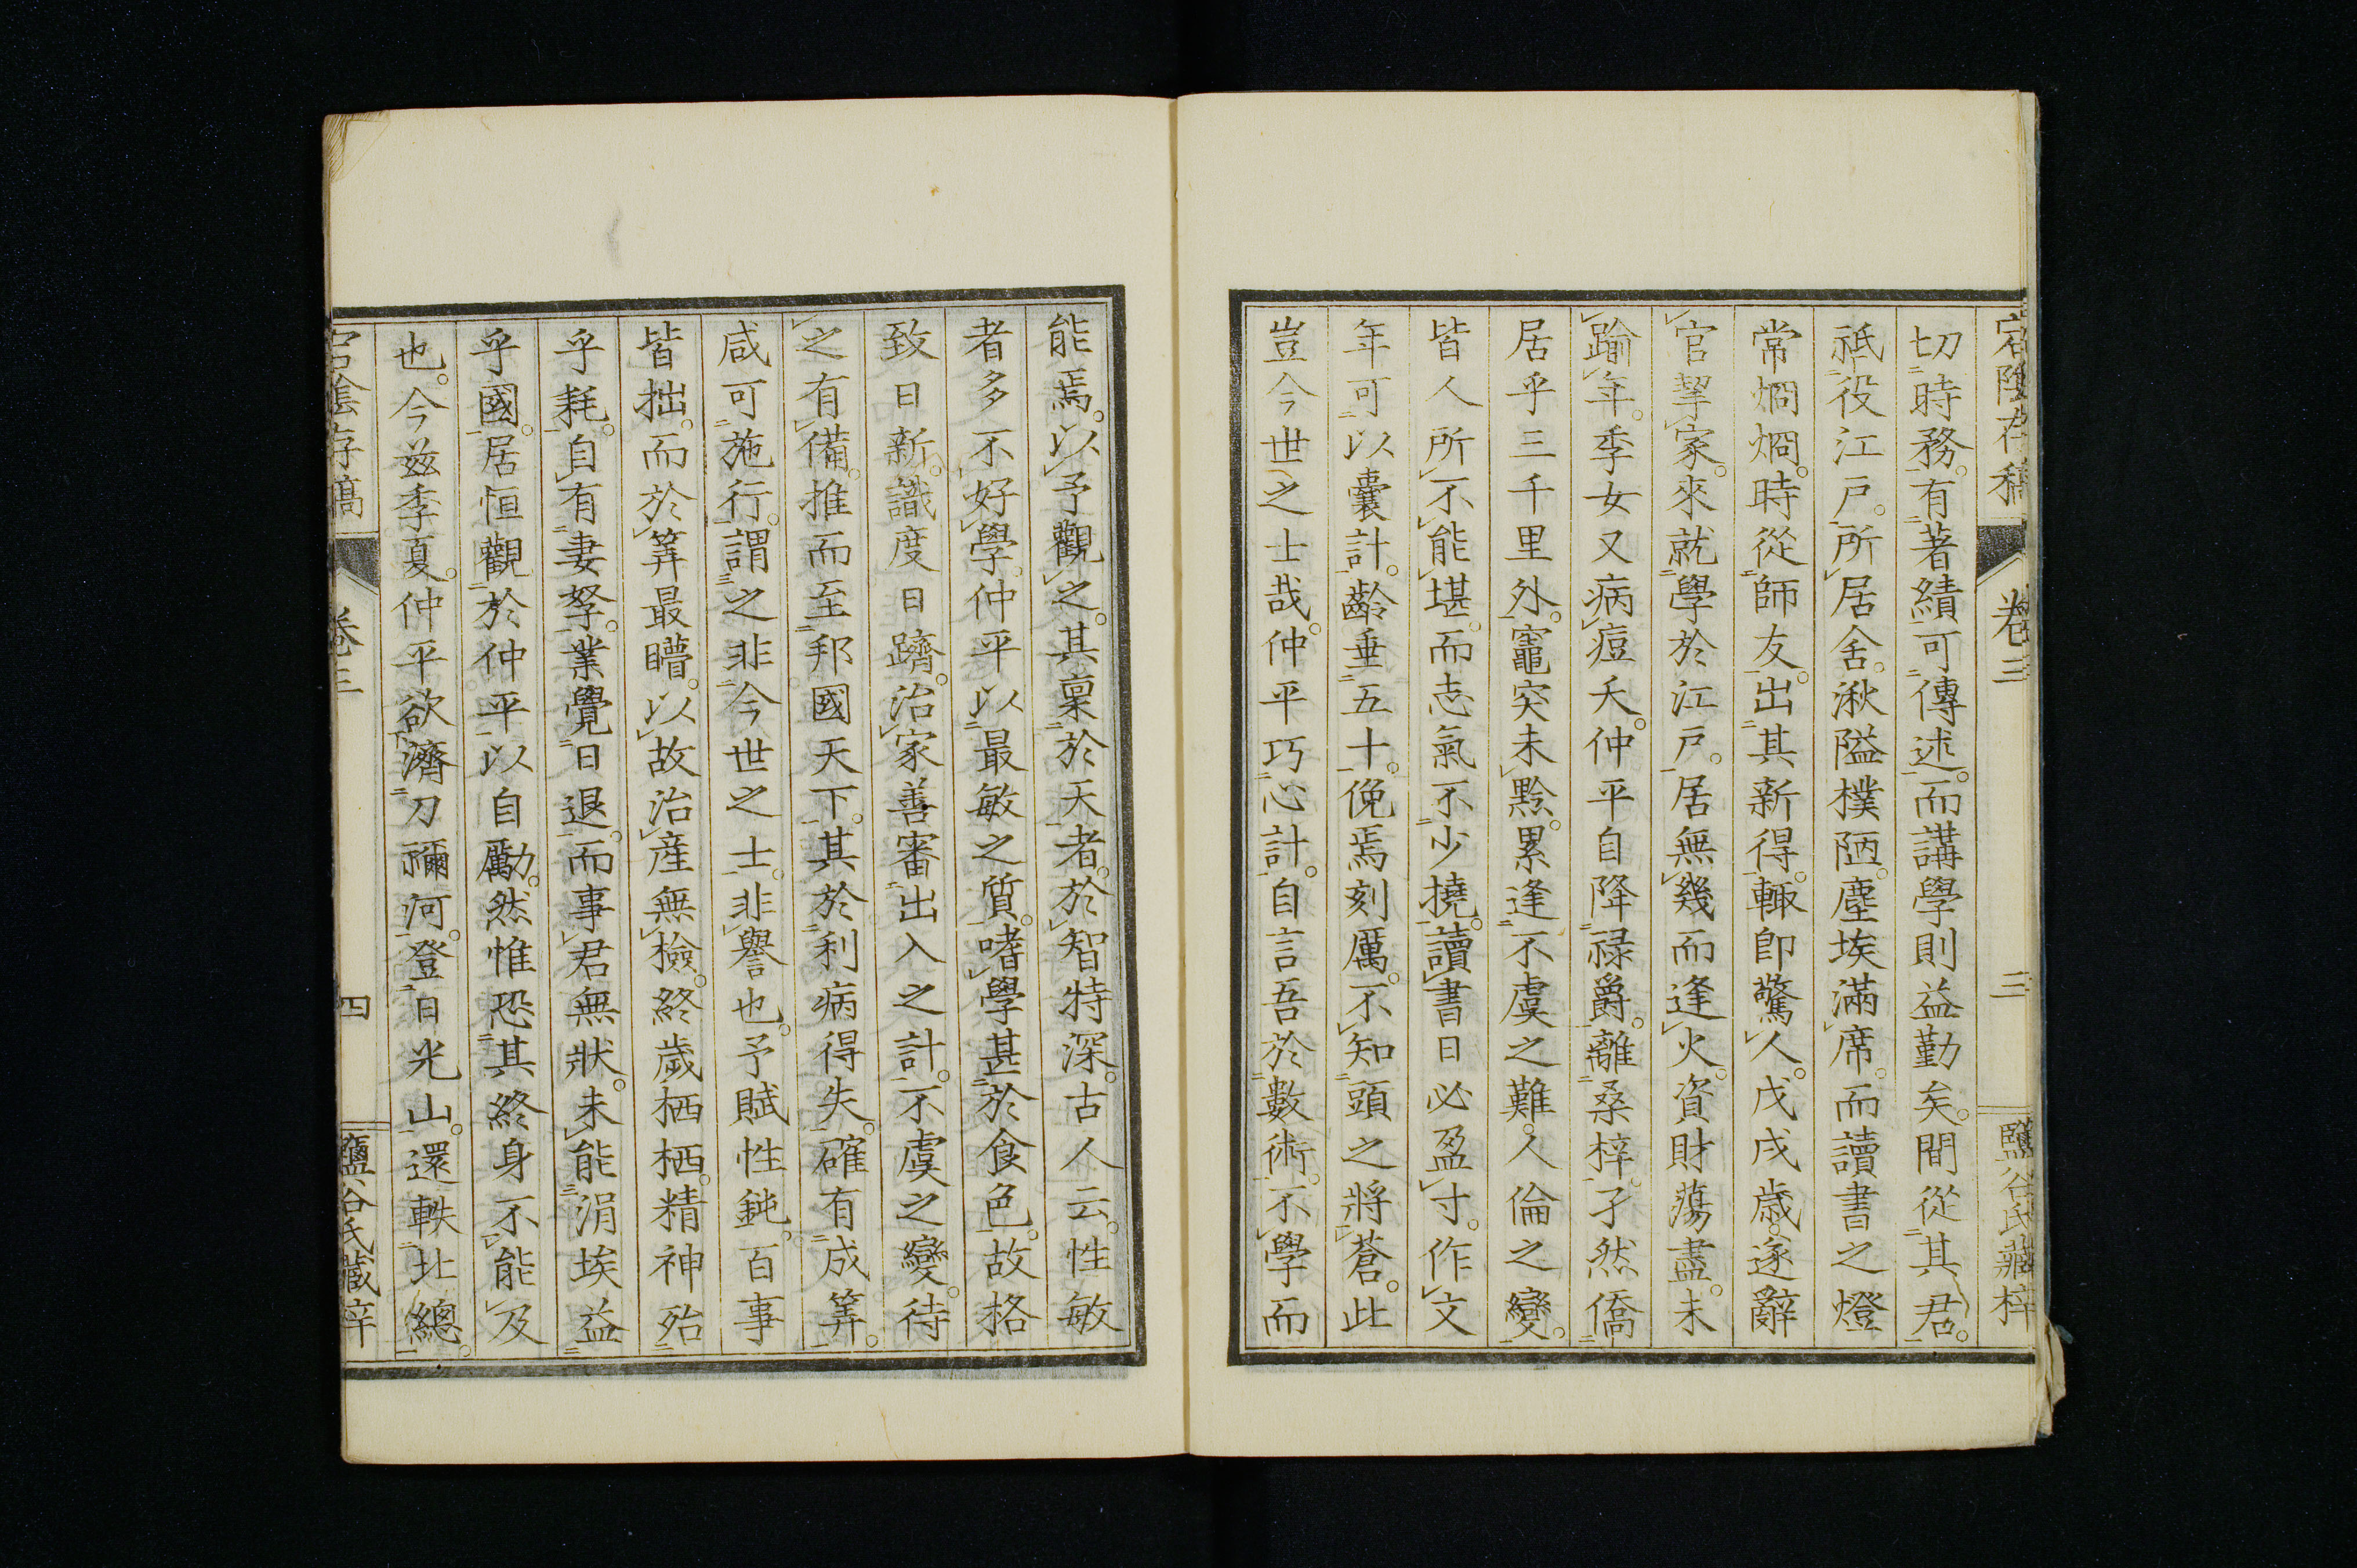 宕陰存稿 卷三 三 鹽谷氏藏梓
切時務。有著績可傳述。而講學則益勤矣。間從其君。
祗役江戸。所居舍。湫隘樸陋。塵埃滿席。而讀書之燈
常烱烱。時從師友。出其新得。輙卽驚人。戊戌歳。遂辭
官挈家。來就學於江戸。居無幾而逢火。資財蕩盡。未
踰年。季女又病痘夭。仲平自降祿爵。離桑梓。孑然僑
居乎三千里外。竈突未黔。累逢不虞之難。人倫之變。
皆人所不能堪。而志氣不少撓。讀書日必盈寸。作文
年可以囊計。齡垂五十。俛焉刻厲。不知頭之將蒼。此
豈今世之士哉。仲平巧心計。自言吾於數術。不學而
能焉。以予觀之。其稟於天者。於智特深。古人云。性敏
者多不好學。仲平以最敏之質。嗜學甚於食色。故格
致日新。識度日躋。治家善審出入之計。不虞之變。待
之有備。推而至邦國天下。其於利病得失。確有成筭。
咸可施行。謂之非今世之士。非譽也。予賦性鈍。百事
皆拙。而於筭最瞢。以故治產無檢。終歲栖栖。精神殆
乎耗。自有妻孥。業覺日退。而事君無狀。未能涓埃益
乎國。居恒觀於仲平以自勵。然惟恐其終身不能及
也。今茲季夏。仲平欲濟刀禰河。登日光山。還軼北總。
宕陰存稿 卷三 四 鹽谷氏藏梓